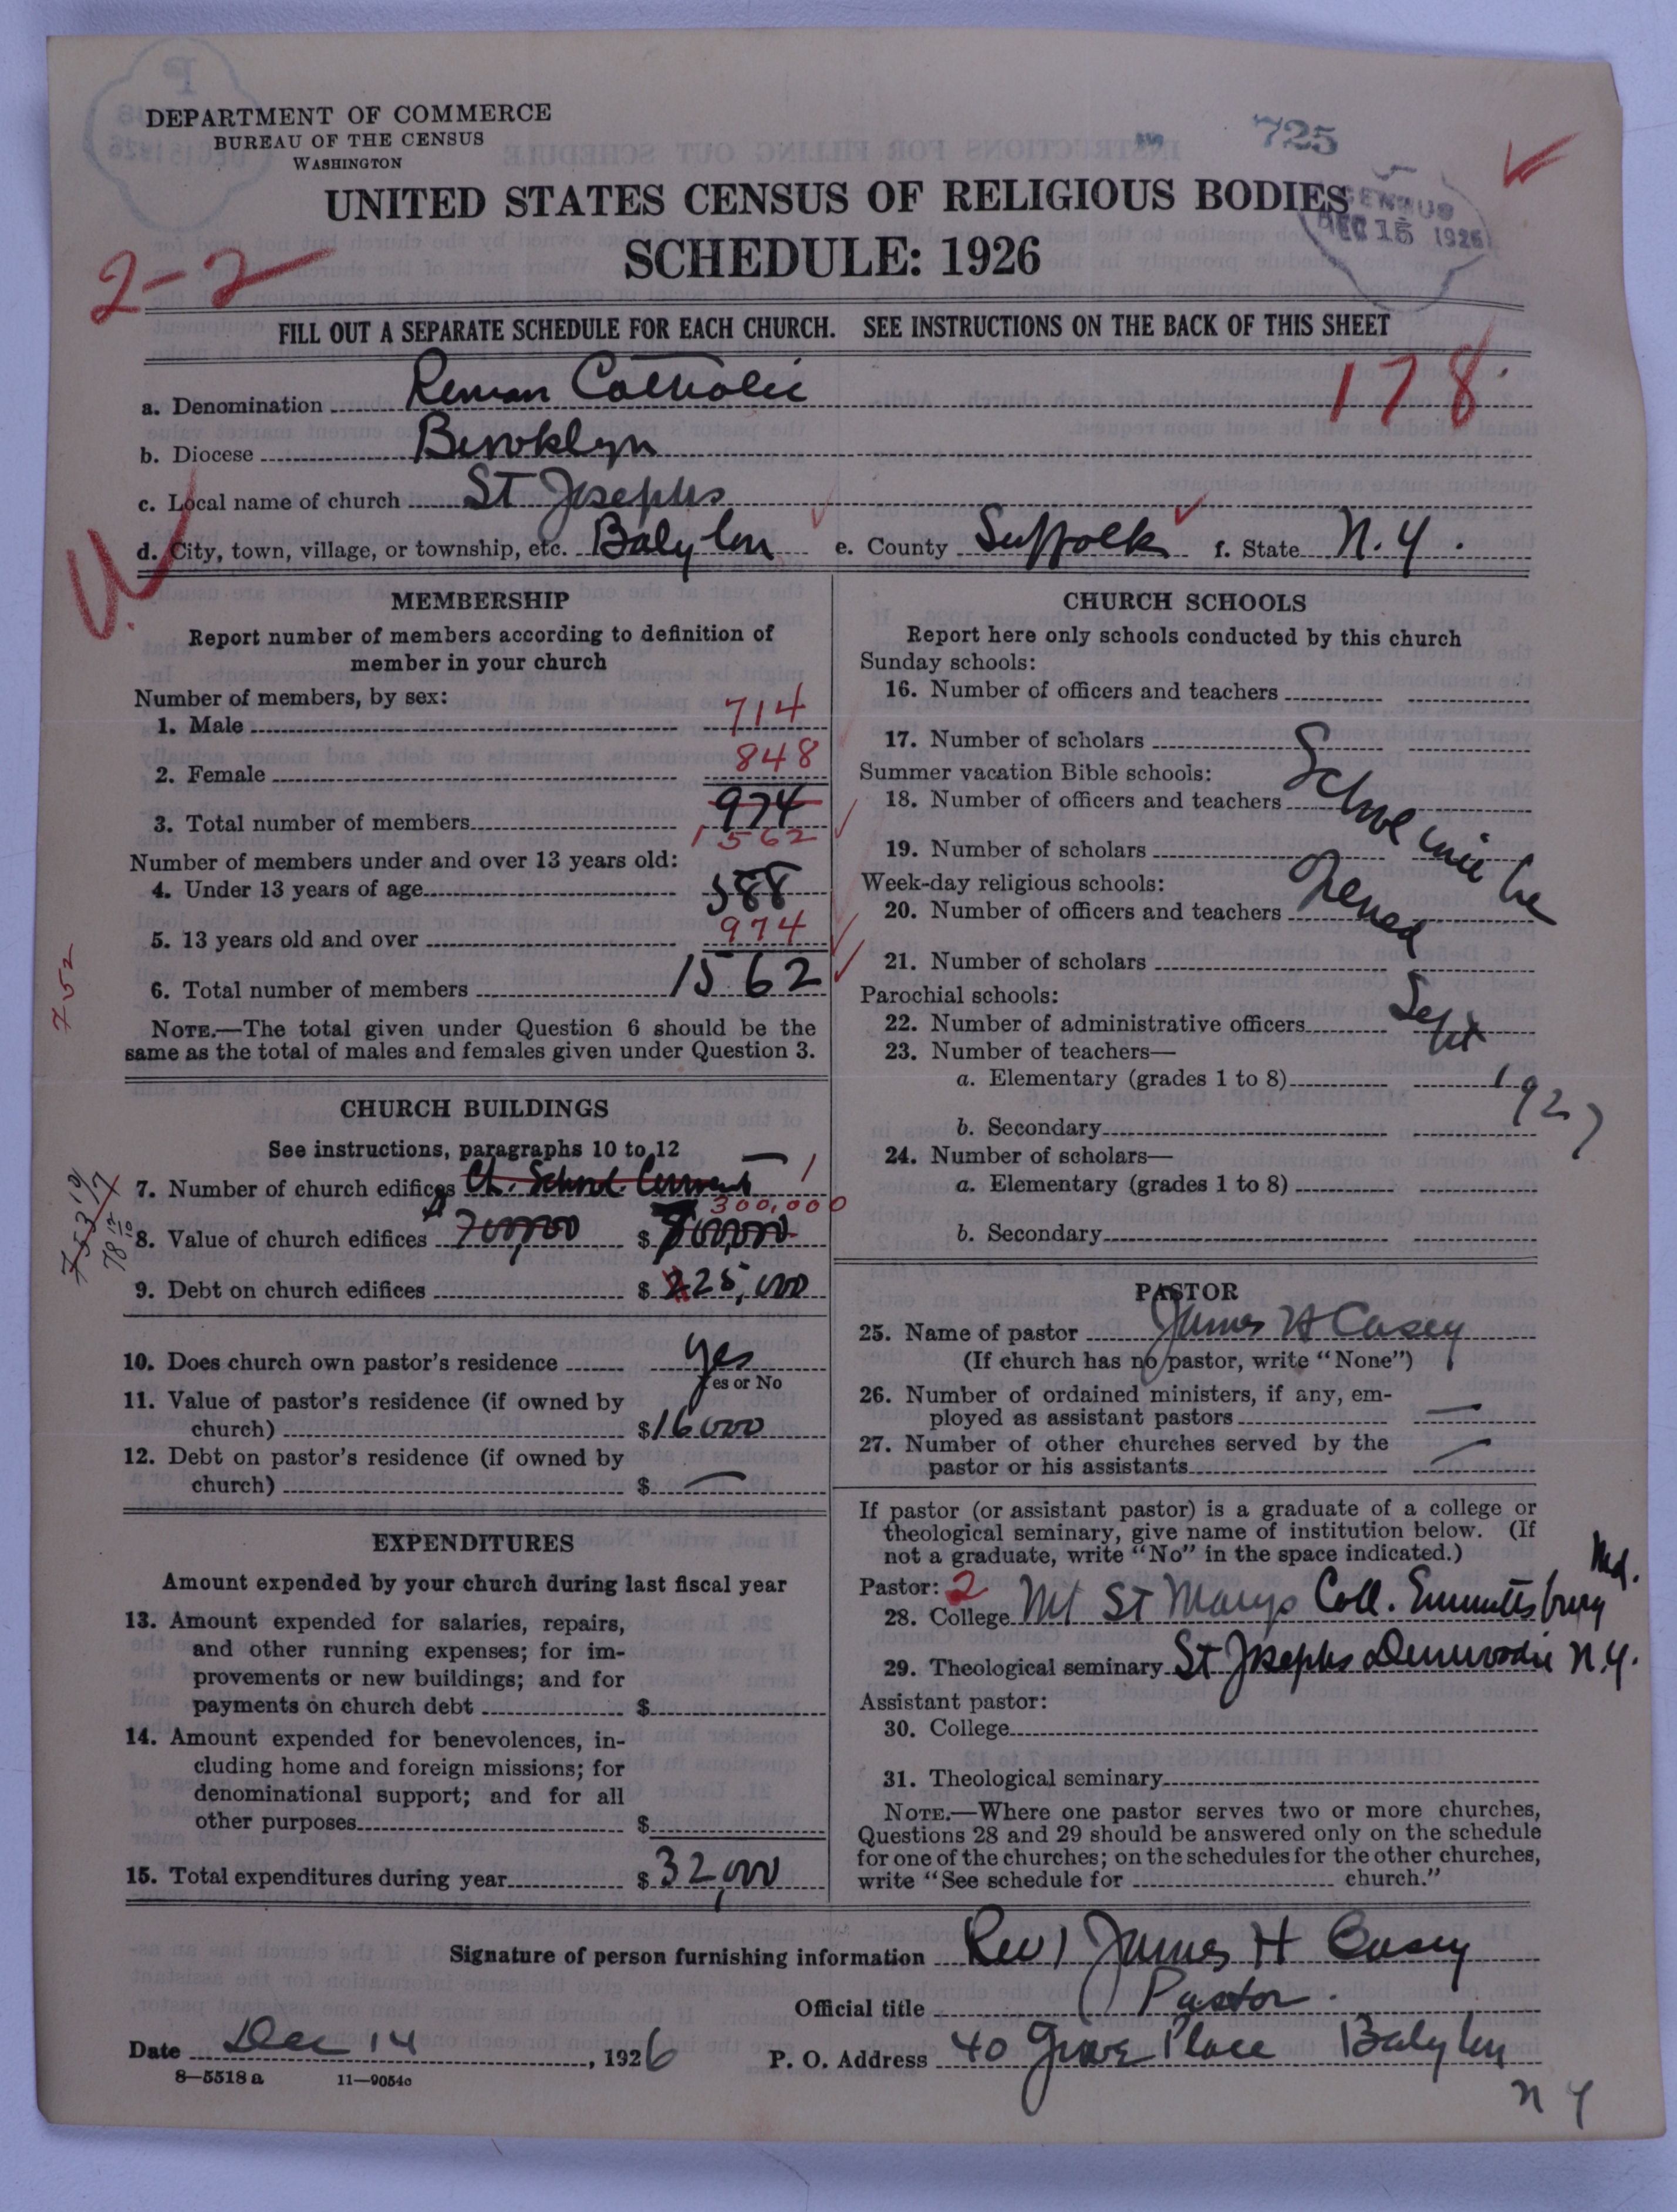 DEPARTMENT OF COMMERCE
BUREAU OF THE CENSUS
WASHINGTON
725
UNITED STATES CENSUS OF RELIGIOUS BODIES
CENSUS
DEC 15 1926
SCHEDULE: 1926
2-2
FILL OUT A SEPARATE SCHEDULE FOR EACH CHURCH. SEE INSTRUCTIONS ON THE BACK OF THIS SHEET
178
a. Denomination Roman Catholic
b. Diocese Brooklyn
c. Local name of church St Josephs
d. City, town, village, or township, etc. Babylon e. County Suffolk f. State N.Y.
MEMBERSHIP
Report number of members according to definition of
member in your church
Number of members, by sex:
1. Male 714
2. Female 848
3. Total number of members 974
1562
Number of members under and over 13 years old:
4. Under 13 years of age 588
5. 13 years old and over 974
6. Total number of members 1562
752
NOTE.—The total given under Question 6 should be the
same as the total of males and females given under Question 3.
CHURCH BUILDINGS
See instructions, paragraphs 10 to 12
7. Number of church edifices Ch. School Convent 1
300,000
8. Value of church edifices 700,000 $
9. Debt on church edifices $ 225,000
10. Does church own pastor's residence yes
Yes or No
11. Value of pastor's residence (if owned by
church) $ 16000
12. Debt on pastor's residence (if owned by
church) $ —
EXPENDITURES
Amount expended by your church during last fiscal year
13. Amount expended for salaries, repairs,
and other running expenses; for im-
provements or new buildings; and for
payments on church debt $
14. Amount expended for benevolences, in-
cluding home and foreign missions; for
denominational support; and for all
other purposes $
15. Total expenditures during year $ 32,000
CHURCH SCHOOLS
Report here only schools conducted by this church
Sunday schools:
16. Number of officers and teachers
17. Number of scholars
Summer vacation Bible schools:
18. Number of officers and teachers
19. Number of scholars
Week-day religious schools:
20. Number of officers and teachers
21. Number of scholars
Parochial schools:
22. Number of administrative officers
23. Number of teachers—
a. Elementary (grades 1 to 8)
b. Secondary
24. Number of scholars—
a. Elementary (grades 1 to 8)
b. Secondary
School will be
opened
Sept
1927
PASTOR
25. Name of pastor James H Casey
(If church has no pastor, write "None")
26. Number of ordained ministers, if any, em-
ployed as assistant pastors —
27. Number of other churches served by the
pastor or his assistants —
If pastor (or assistant pastor) is a graduate of a college or
theological seminary, give name of institution below. (If
not a graduate, write "No" in the space indicated.)
Pastor: 2
28. College Mt St Marys Coll. Emmittsburg Md.
29. Theological seminary St Josephs Dunwoodie N.Y.
Assistant pastor:
30. College
31. Theological seminary
NOTE.—Where one pastor serves two or more churches,
Questions 28 and 29 should be answered only on the schedule
for one of the churches; on the schedules for the other churches,
write "See schedule for church."
Signature of person furnishing information Rev James H Casey
Official title Pastor.
Date Dec 14, 1926 P. O. Address 40 Grove Place Babylon
N Y
8—5518 a 11—9054c